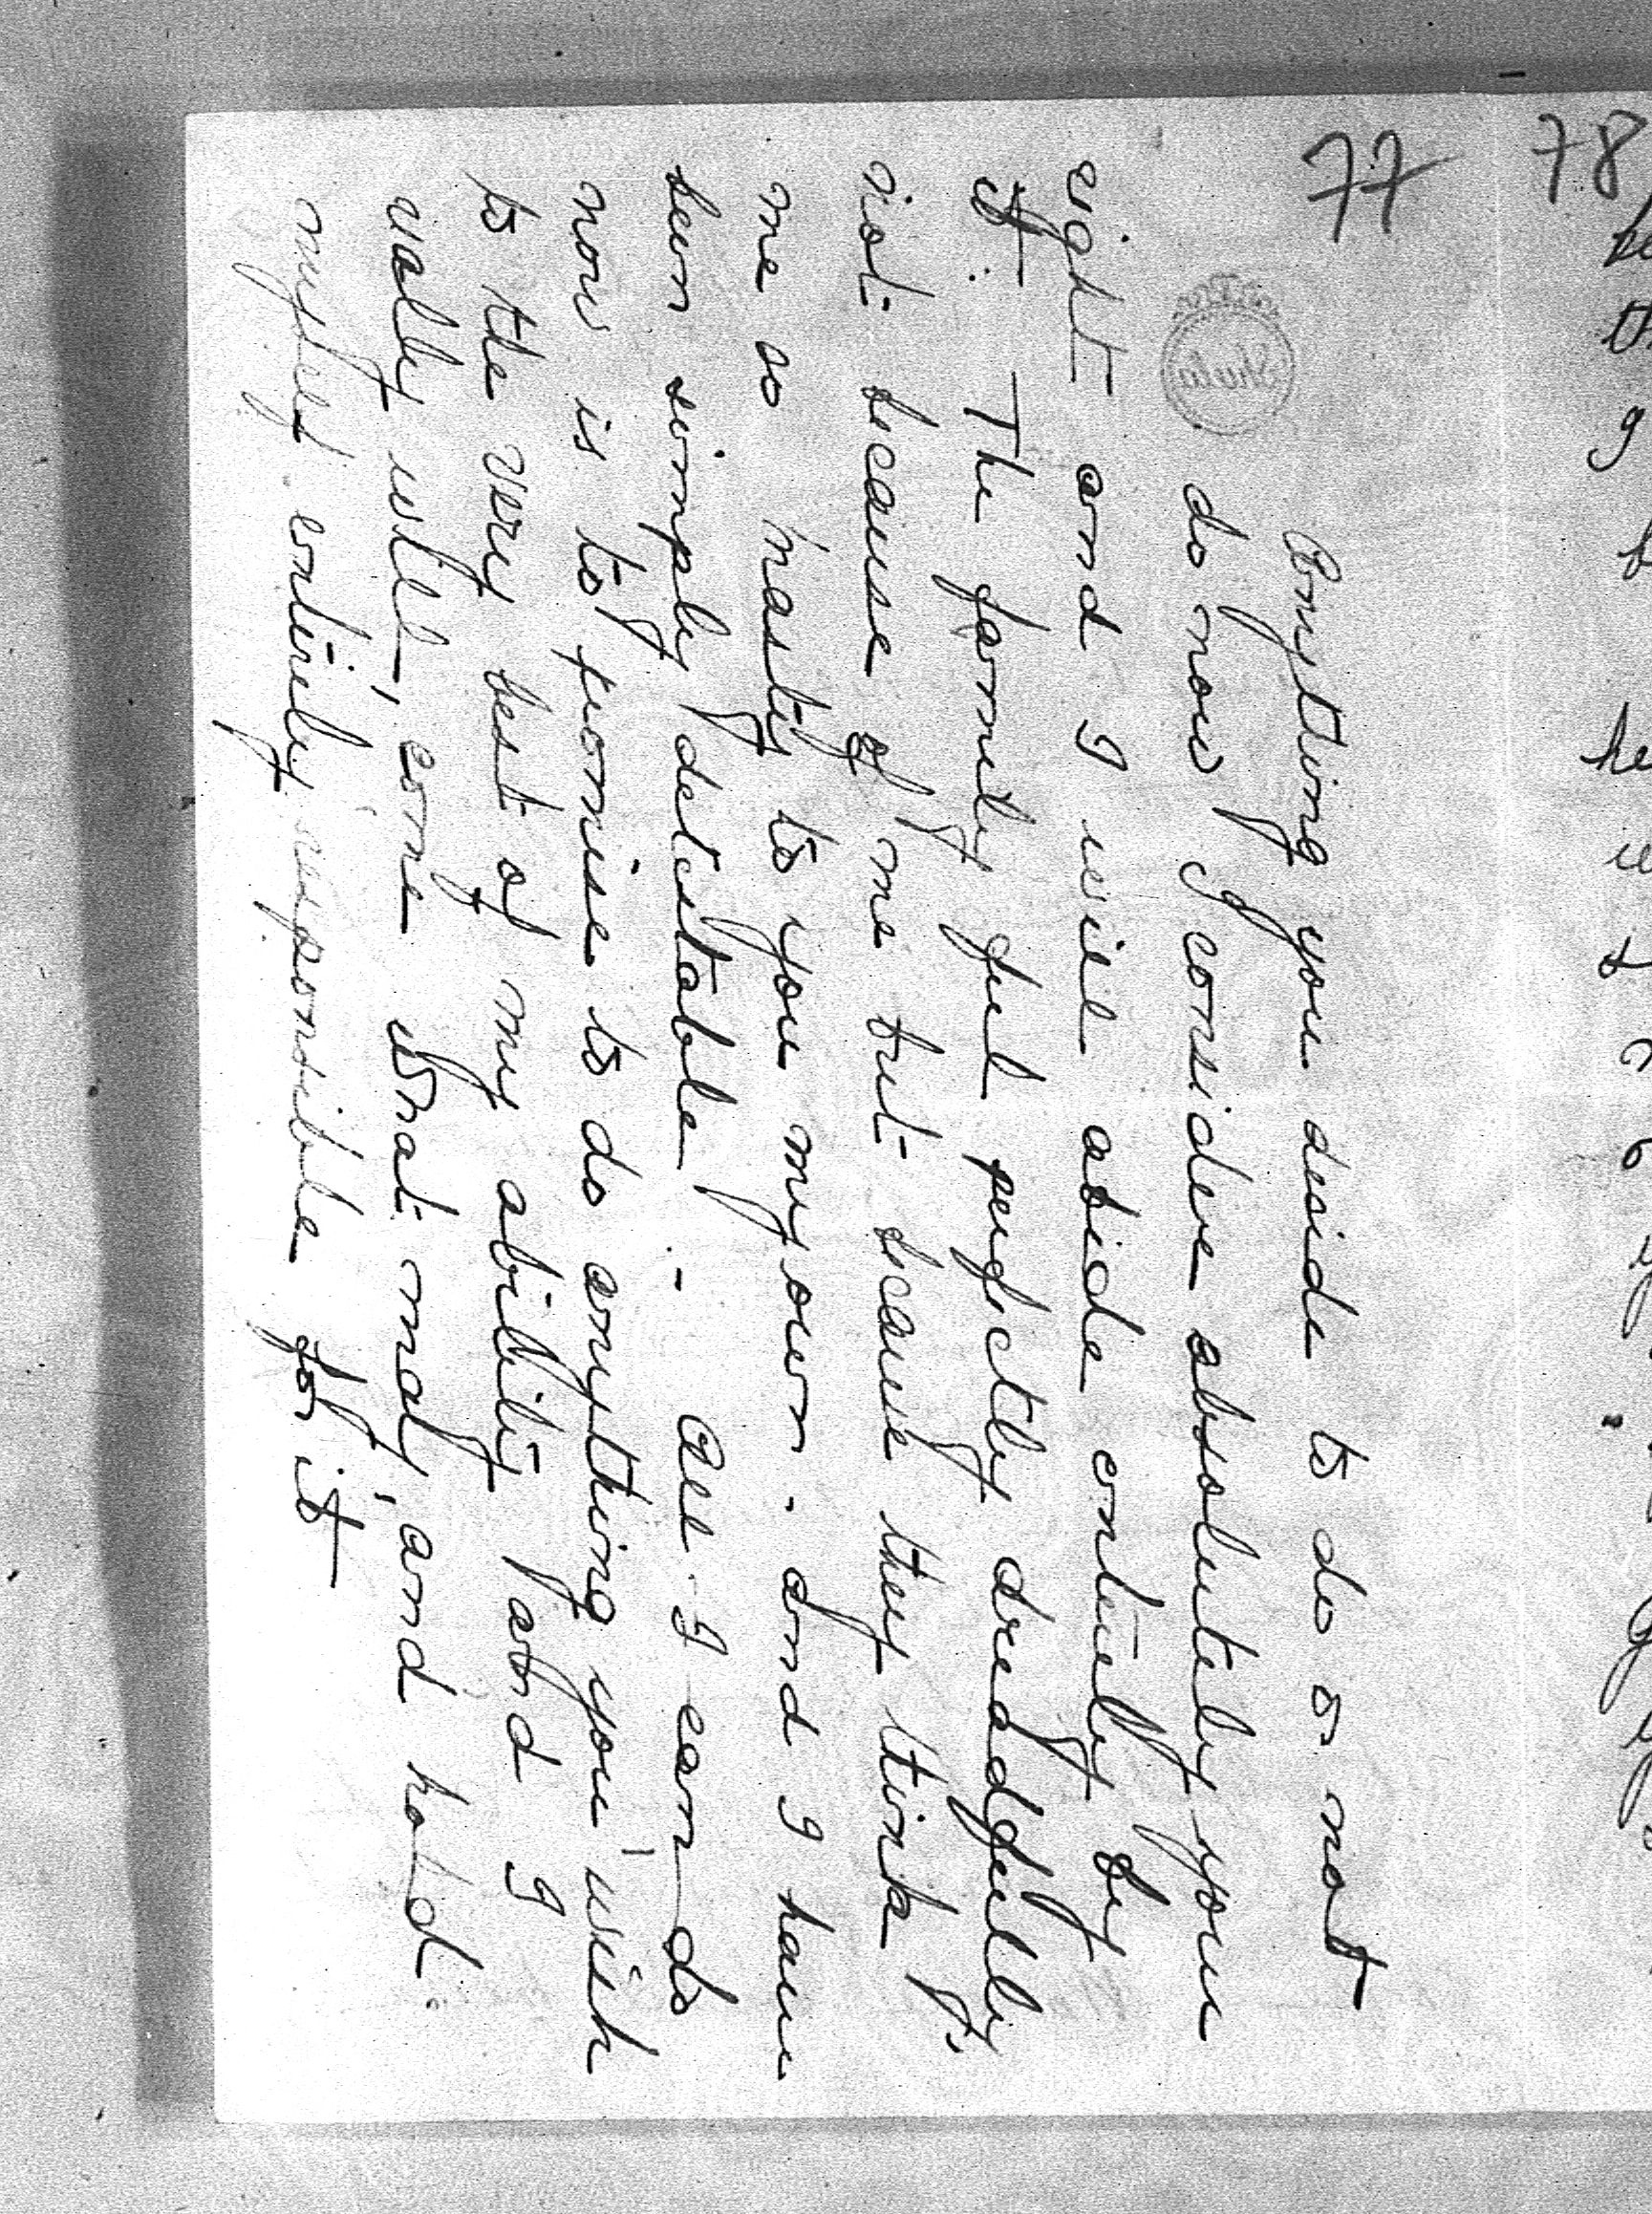 78
77
Shula
Anything you deside to do or not
do now I consider absolutely your
right and I will abide entirely by
it. The family feel perfectly dreadfully,
not because of me but because they think
me so nasty to you my own - and I have
been simply detestable. - All I can do
now is to promise to do anything you wish
to the very best of my ability and I
really will, come what may, and hold
myself entirely responsible for it